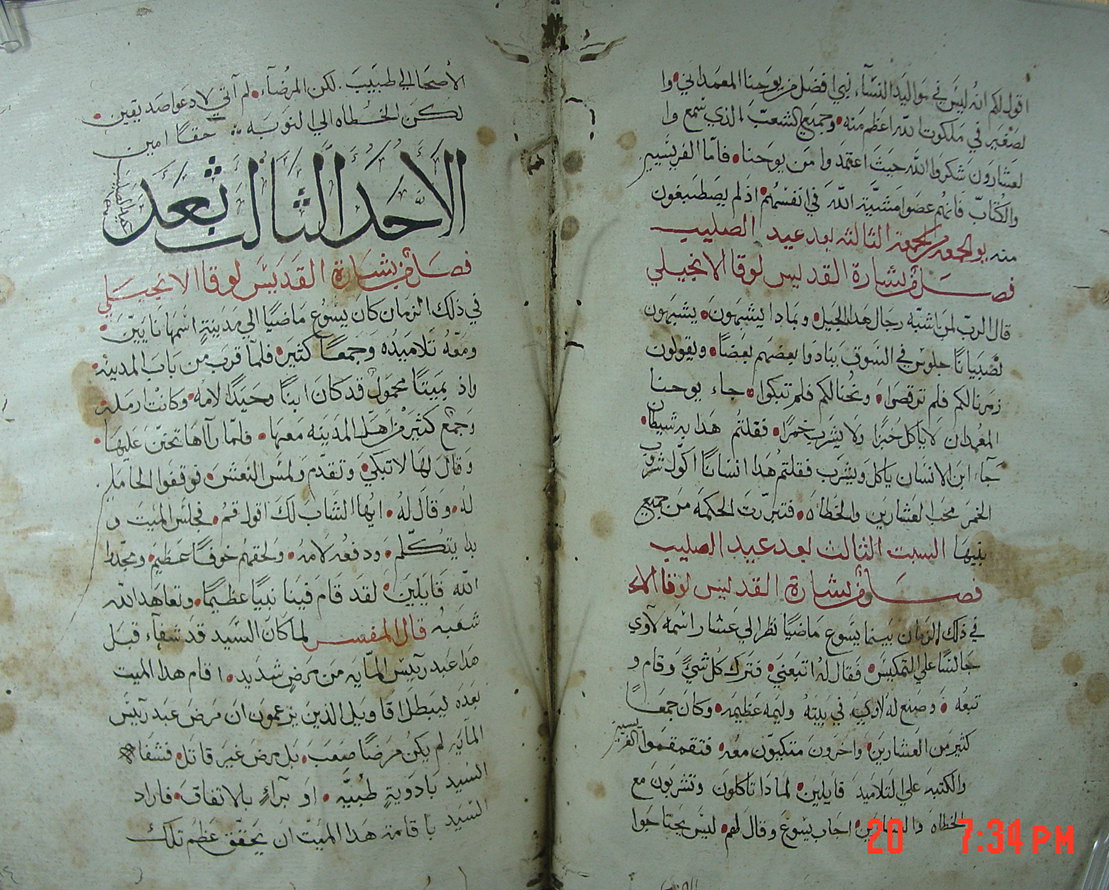 اقول لكم انه ليس في مواليد النساء نبي افضل من يوحنا المعمداني وا
لصغير في ملكوت الله اعظم منه وجميع الشعب الذي سمع وا
لعشارون شكروا الله حيث اعتمدوا من يوحنا فاما الفريسيين
والكتاب فانهم عصوا مشية الله في انفسهم اذ لم يصطبغون
منه يوم الجمعه الثالثه بعد عيد الصليب
فصل من بشارة القديس لوقا الانجيلي
قال الرب لمن اشبه رجال هذا الجيل وبماذا يشبهون يشبهون
لصبيانا جلوس في السوق ينادوا بعضهم بعضا ويقولون
زمرنا لكم فلم ترقصوا ونحنا لكم فلم تبكوا جاء يوحنا
المعمدان لا ياكل خبزا ولا يشرب خمرا فقلتم هذا به شيطان
جا ابن الانسان ياكل ويشرب فقلتم هذا انسانا اكول شروب
الخمر محب العشارين والخطاه فتبررت الحكمه من جميع
بنيها السبت الثالث بعد عيد الصليب
فصل من بشارة القديس لوقا الا
في ذلك الزمان بينما يسوع ماضيا نظر الي عشار اسمه لاوي
جالسا علي التمكيس فقال له اتبعني فترك كل شي وقام و
تبعه وصنع له لاوي في بيته وليمه عظيمه وكان جمعا
كثير من العشارين واخرون متكيون معه فتقمقموا الفريسيين
والكتبه علي التلاميد قايلين لماذا تاكلون وتشربون مع
الخطاه والعشارين اجاب يسوع وقال لهم ليس يحتاجوا
الاصحا الي طبيب لكن المرضاء لم آتي لادعوا صديقين
لكن الخطاه الي التوبه حقا امين
الاحد الثالث بعد
عيد الصليب
فصل من بشارة القديس لوقا الانجيلي
في ذلك الزمان كان يسوع ماضيا الي مدينة اسمها نايين
ومعه تلاميده وجمعا كثير فلما قرب من باب المدينه
واذ بميتا محمول قد كان ابنا وحيدا لامه وكانت ارمله
وجمع كثير من اهل المدينه معها فلما رآها تحنن عليها
وقال لها لا تبكي وتقدم ولمس النعش فوقفوا الحامل
له وقال له ايها الشاب لك اقول قم فجلس الميت و
بدا يتكلم ودفعه لامه ولحقهم خوفا عظيم ومجدوا
الله قايلين لقد قام فينا نبيا عظيما وتعاهد الله
شعبه قال المفسر لما كان السيد قد شفاء قبل
هذا عبد رييس المايه من مرض شديد اقام هذا الميت
بعده ليبطل اقاويل الذين يزعمون ان مرض عبد رييس
المايه لم يكن مرضا صعب بل مرض غير قاتل فشفاه
السيد بادوية طبيه او برآء بالاتفاق فاراد
السيد باقامة هذا الميت ان يحقق عظم تلك
20 7:34 PM